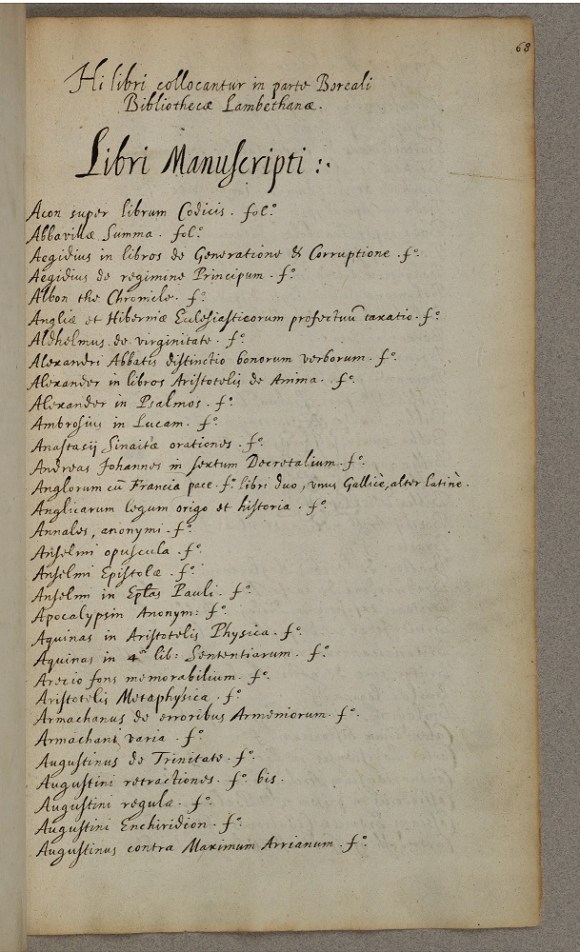 68
Hi libri collocantur in parte Boreali
Bibliothecæ Lambethanæ.
Libri Manuscripti :·
Acon super librum Codicis. fol.º
Abbavillæ Summa. fol.º
Aegidius in libros de Generatione & Corruptione. f.º
Aegidius de regimine Principum. f.º
Albon the Chronicle. f.º
Angliæ et Hiberniæ Ecclesiasticorum profectuũ taxatio. f.º
Aldhelmus de virginitate. f.º
Alexandri Abbatis distinctio bonorum verborum. f.º
Alexander in libros Aristotelis de Anima. f.º
Alexander in Psalmos. f.º
Ambrosius in Lucam. f.º
Anastasij Sinaitæ orationes. f.º
Andreas Johannes in sextum Decretalium. f.º
Anglorum cũ Francia pace. f.º libri duo, vnus Gallicè, alter Latinè.
Anglicarum legum origo et historia. f.º
Annales, anonymi. f.º
Anselmi opuscula. f.º
Anselmi Epistolæ. f.º
Anselm in Eptas Pauli. f.º
Apocalypsin Anonym: f.º
Aquinas in Aristotelis Physica. f.º
Aquinas in 4ᵐ lib: Sententiarum. f.º
Arecio fons memorabilium. f.º
Aristotelis Metaphysica. f.º
Armachanus de erroribus Armeniorum. f.º
Armachani varia. f.º
Augustinus de Trinitate. f.º
Augustini retractiones. f.º bis.
Augustini regulæ. f.º
Augustini Enchiridion. f.º
Augustinus contra Maximum Arrianum. f.º